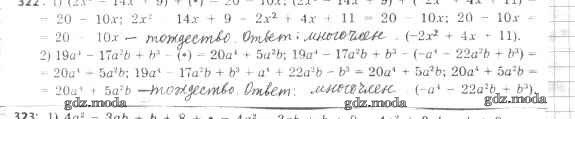 = 20 − 10x; 2x² − 14x + 9 − 2x² + 4x + 11 = 20 − 10x; 20 − 10x =
= 20 − 10x — тождество. Ответ: многочлен (−2x² + 4x + 11).
2) 19a⁴ − 17a²b + b³ − (•) = 20a⁴ + 5a²b; 19a⁴ − 17a²b + b³ − (−a⁴ − 22a²b + b³) =
= 20a⁴ + 5a²b; 19a⁴ − 17a²b + b³ + a⁴ + 22a²b − b³ = 20a⁴ + 5a²b; 20a⁴ + 5a²b =
= 20a⁴ + 5a²b — тождество. Ответ: многочлен (−a⁴ − 22a²b + b³).
gdz.moda gdz.moda gdz.moda
323: 1)